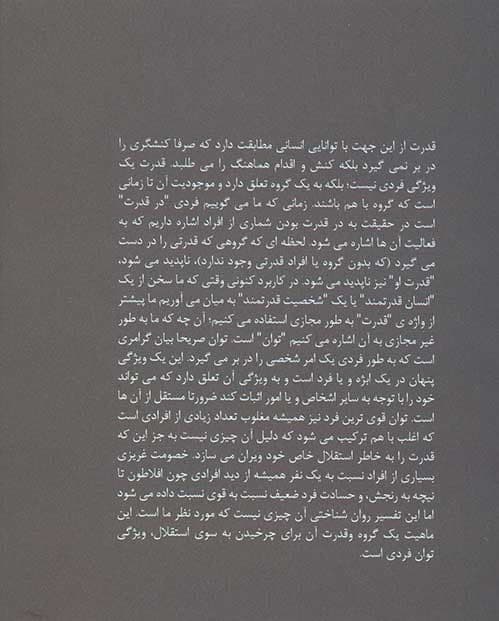 قدرت از این جهت با توانایی انسانی مطابقت دارد که صرفا کنشگری را
در بر نمی گیرد بلکه کنش و اقدام هماهنگ را می طلبد. قدرت یک
ویژگی فردی نیست؛ بلکه به یک گروه تعلق دارد و موجودیت آن تا زمانی
است که گروه با هم باشند. زمانی که ما می گوییم فردی "در قدرت"
است در حقیقت به در قدرت بودن شماری از افراد اشاره داریم که به
فعالیت آن ها اشاره می شود. لحظه ای که گروهی که قدرتی را در دست
می گیرد (که بدون گروه یا افراد قدرتی وجود ندارد)، ناپدید می شود،
"قدرت او" نیز ناپدید می شود. در کاربرد کنونی وقتی که ما سخن از یک
"انسان قدرتمند" یا یک "شخصیت قدرتمند" به میان می آوریم ما پیشتر
از واژه ی "قدرت" به طور مجازی استفاده می کنیم؛ آن چه که ما به طور
غیر مجازی به آن اشاره می کنیم "توان" است. توان صریحا بیان گرامری
است که به طور فردی یک امر شخصی را در بر می گیرد. این یک ویژگی
پنهان در یک ابژه و یا فرد است و به ویژگی آن تعلق دارد که می تواند
خود را با توجه به سایر اشخاص و یا امور اثبات کند ضرورتا مستقل از آن ها
است. توان قوی ترین فرد نیز همیشه مغلوب تعداد زیادی از افرادی است
که اغلب با هم ترکیب می شود که دلیل آن چیزی نیست به جز این که
قدرت را به خاطر استقلال خاص خود ویران می سازد. خصومت غریزی
بسیاری از افراد نسبت به یک نفر همیشه از دید افرادی چون افلاطون تا
نیچه به رنجش، و حسادت فرد ضعیف نسبت به قوی نسبت داده می شود
اما این تفسیر روان شناختی آن چیزی نیست که مورد نظر ما است. این
ماهیت یک گروه وقدرت آن برای چرخیدن به سوی استقلال، ویژگی
توان فردی است.